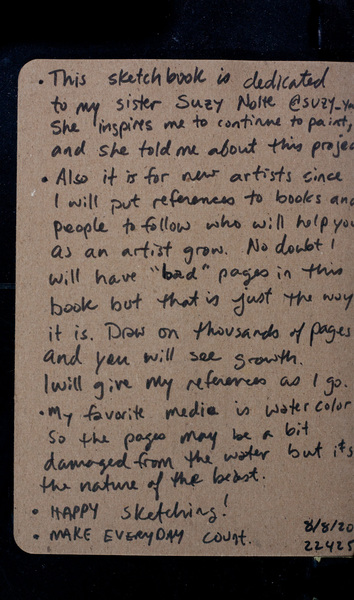 • This sketchbook is dedicated
to my sister Suzy Nolte
She inspires me to continue to paint,
and she told me about this
• Also it is for new artists since
I will put references to books
people to follow who will help
as an artist grow. No doubt I
will have "bad" pages in this
book but that is just the way
it is. Draw on thousands of pages
and you will see growth.
I will give my references as I go.
• My favorite media is watercolor
so the pages may be a bit
damaged from the water but its
the nature of the beast.
• HAPPY sketching!
• MAKE EVERYDAY COUNT.
8/8/20
22425